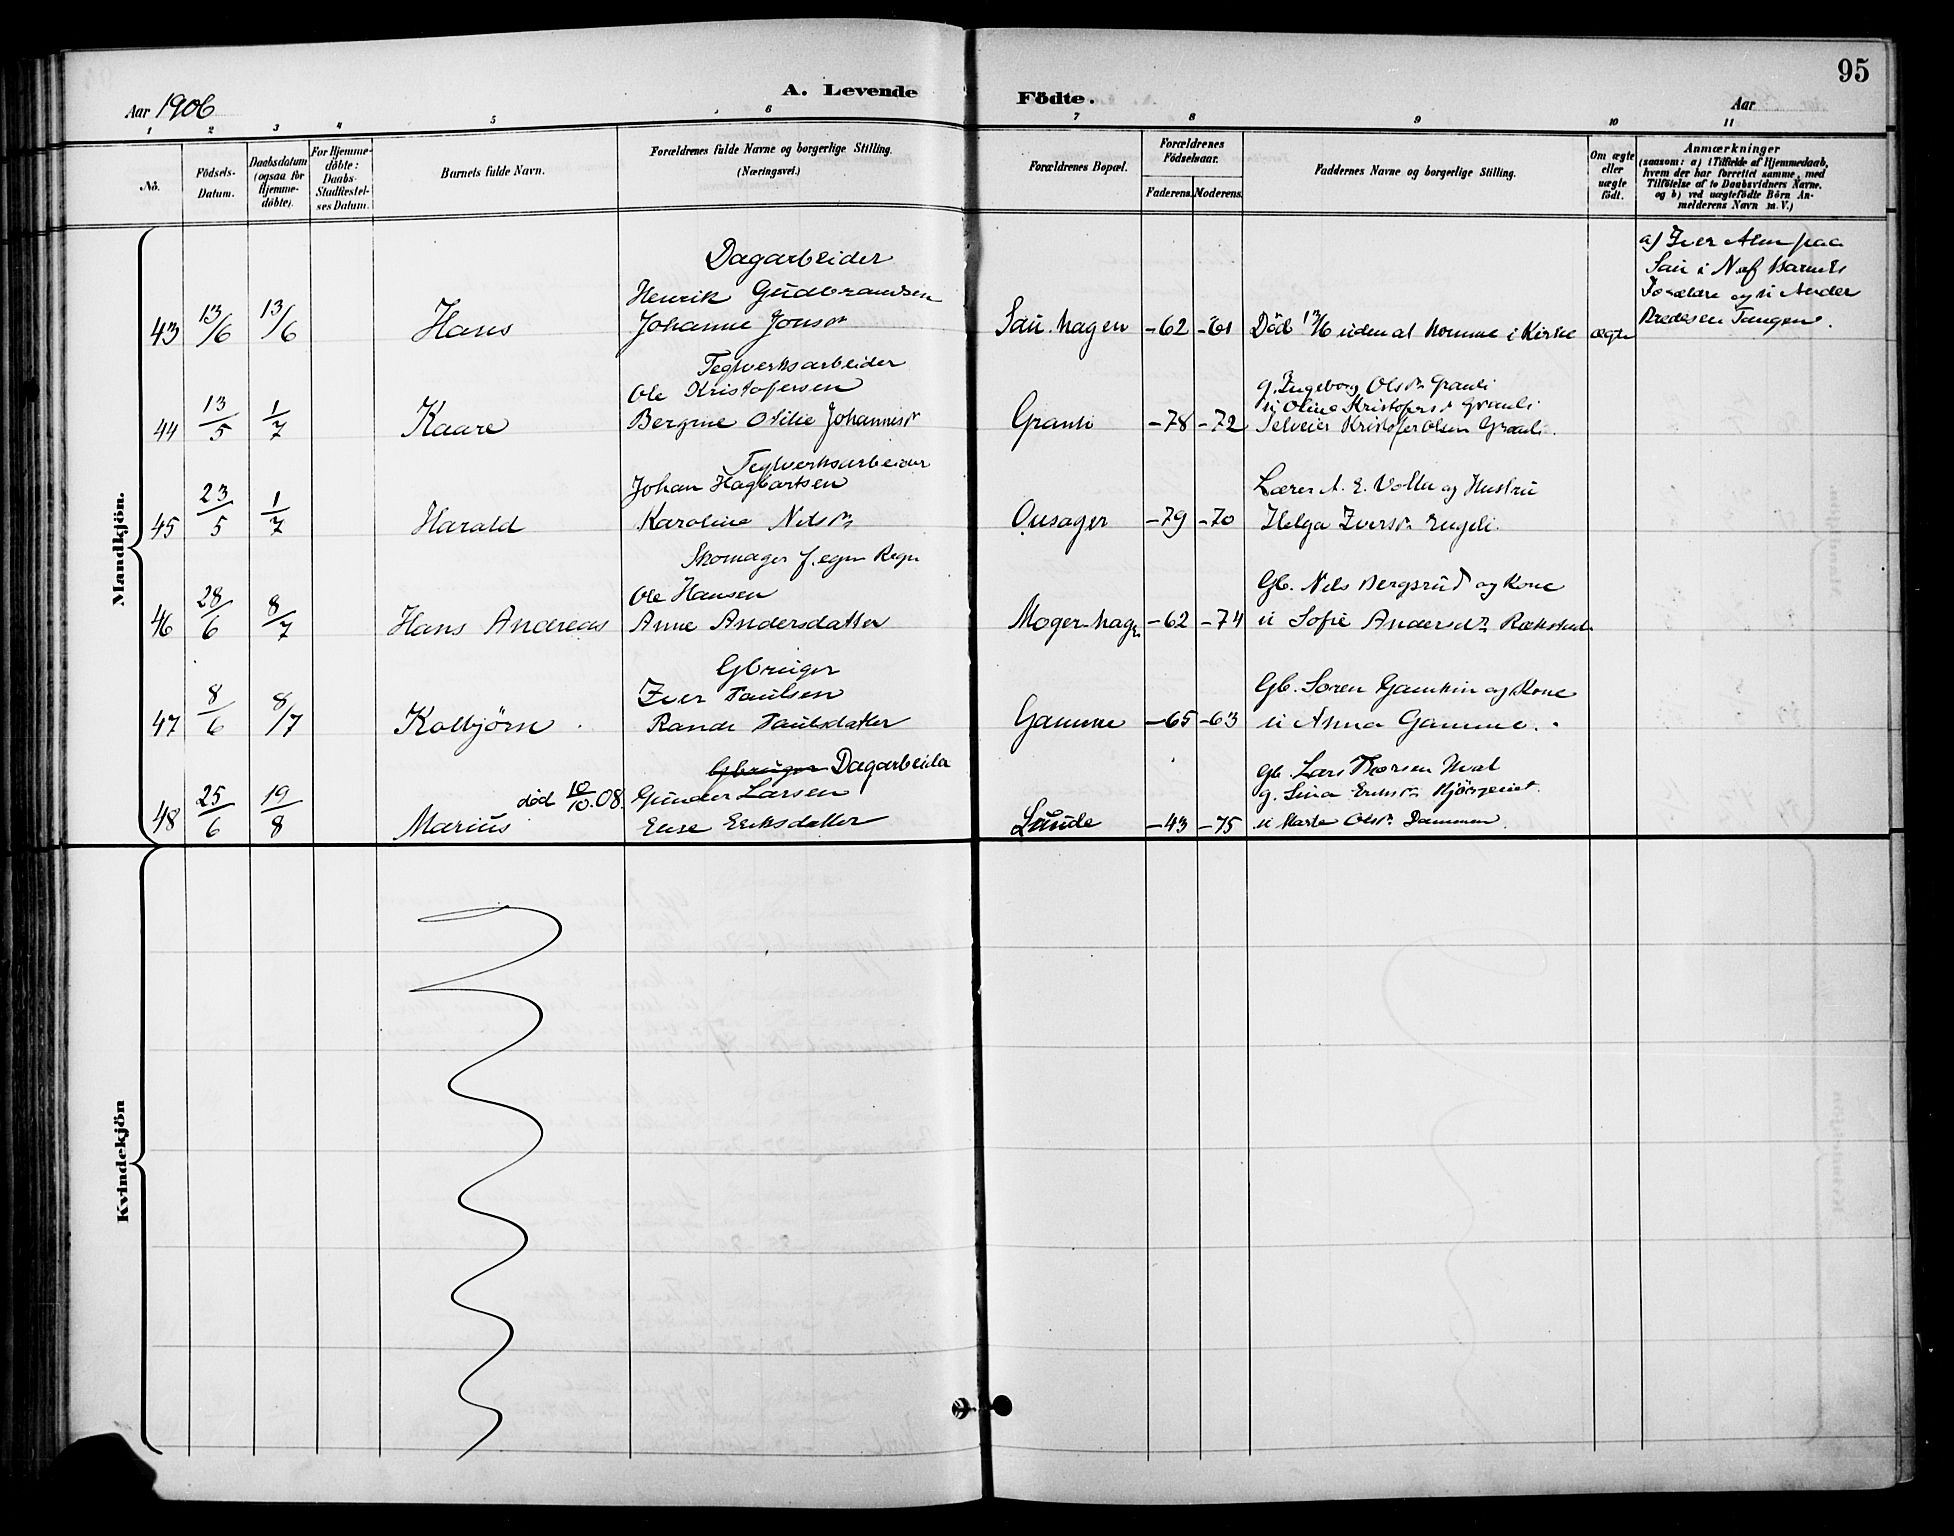 95
Aar 1906
A. Levende
Födte.
Aar
1 2 3 4 5 6 7 8 9 10 11
No.
Födsels-Datum.
Daabsdatum (ogsaa for Hjemme-döbte).
For Hjemme-döbte: Daabs-Stadfæstel-ses Datum.
Barnets fulde Navn.
Forældrenes fulde Navne og borgerlige Stilling.
(Næringsvei.)
Forældrenes Bopæl.
Forældrenes Födselsaar.
Faderens. Moderens.
Faddernes Navne og borgerlige Stilling.
Om ægte eller uægte födt.
Anmærkninger
(saasom: a) i Tilfælde af Hjemmedaab,
hvem der har forrettet samme, med
Tilföielse af to Daabsvidners Navne,
og b) ved uægtefödte Börn An-
melderens Navn m. V.)
Mandkjön.
Dagarbeider
Henrik Gudbrandsen
43 13/6 13/6 Hans Johanne Jonsdr Sau.hagen -62 -61 Død 13/6 uden at komme i Kirke ægte
a) Iver Alm paa
Sau i Nvf Barnets
Forældre og u Ander
Bredesen Tangen.
Teglverksarbeider
Ole Kristofersen
44 13/5 1/7 Kaare Bergine Otilie Johannesdr Granli -78 -72
g. Ingeborg Olsdr Granli
u Oline Kristofersdr Granli
Selveier Kristofer Olsen Granli.
Teglverksarbeider
Johan Hagbartsen
45 23/5 1/7 Harald Karoline Nilsdr Ousager -79 -70
Lærer A. E. Volle og Hustru
Helga Iversdr Engeli.
Skomager f. egen Regn
Ole Hansen
46 28/6 8/7 Hans Andreas Anne Andersdatter Moger-hagen -62 -74
Gb. Nils Bergsrud og Kone
u Sofie Andersdr
Gbruger
Iver Paulsen
47 8/6 8/7 Kolbjørn Rande Paulsdatter Gamme -65 -63
Gb. Soren og Kone
u Anna Gamme.
Gbruger Dagarbeider
død 10/10.08. Gunder Larsen
48 25/6 19/8 Marius Else Eriksdatter Lunde -43 -75
Gb. Lars Thorsen
g. Lina Eriksdr
u Marte Olsdr Dammen.
Kvindekjön